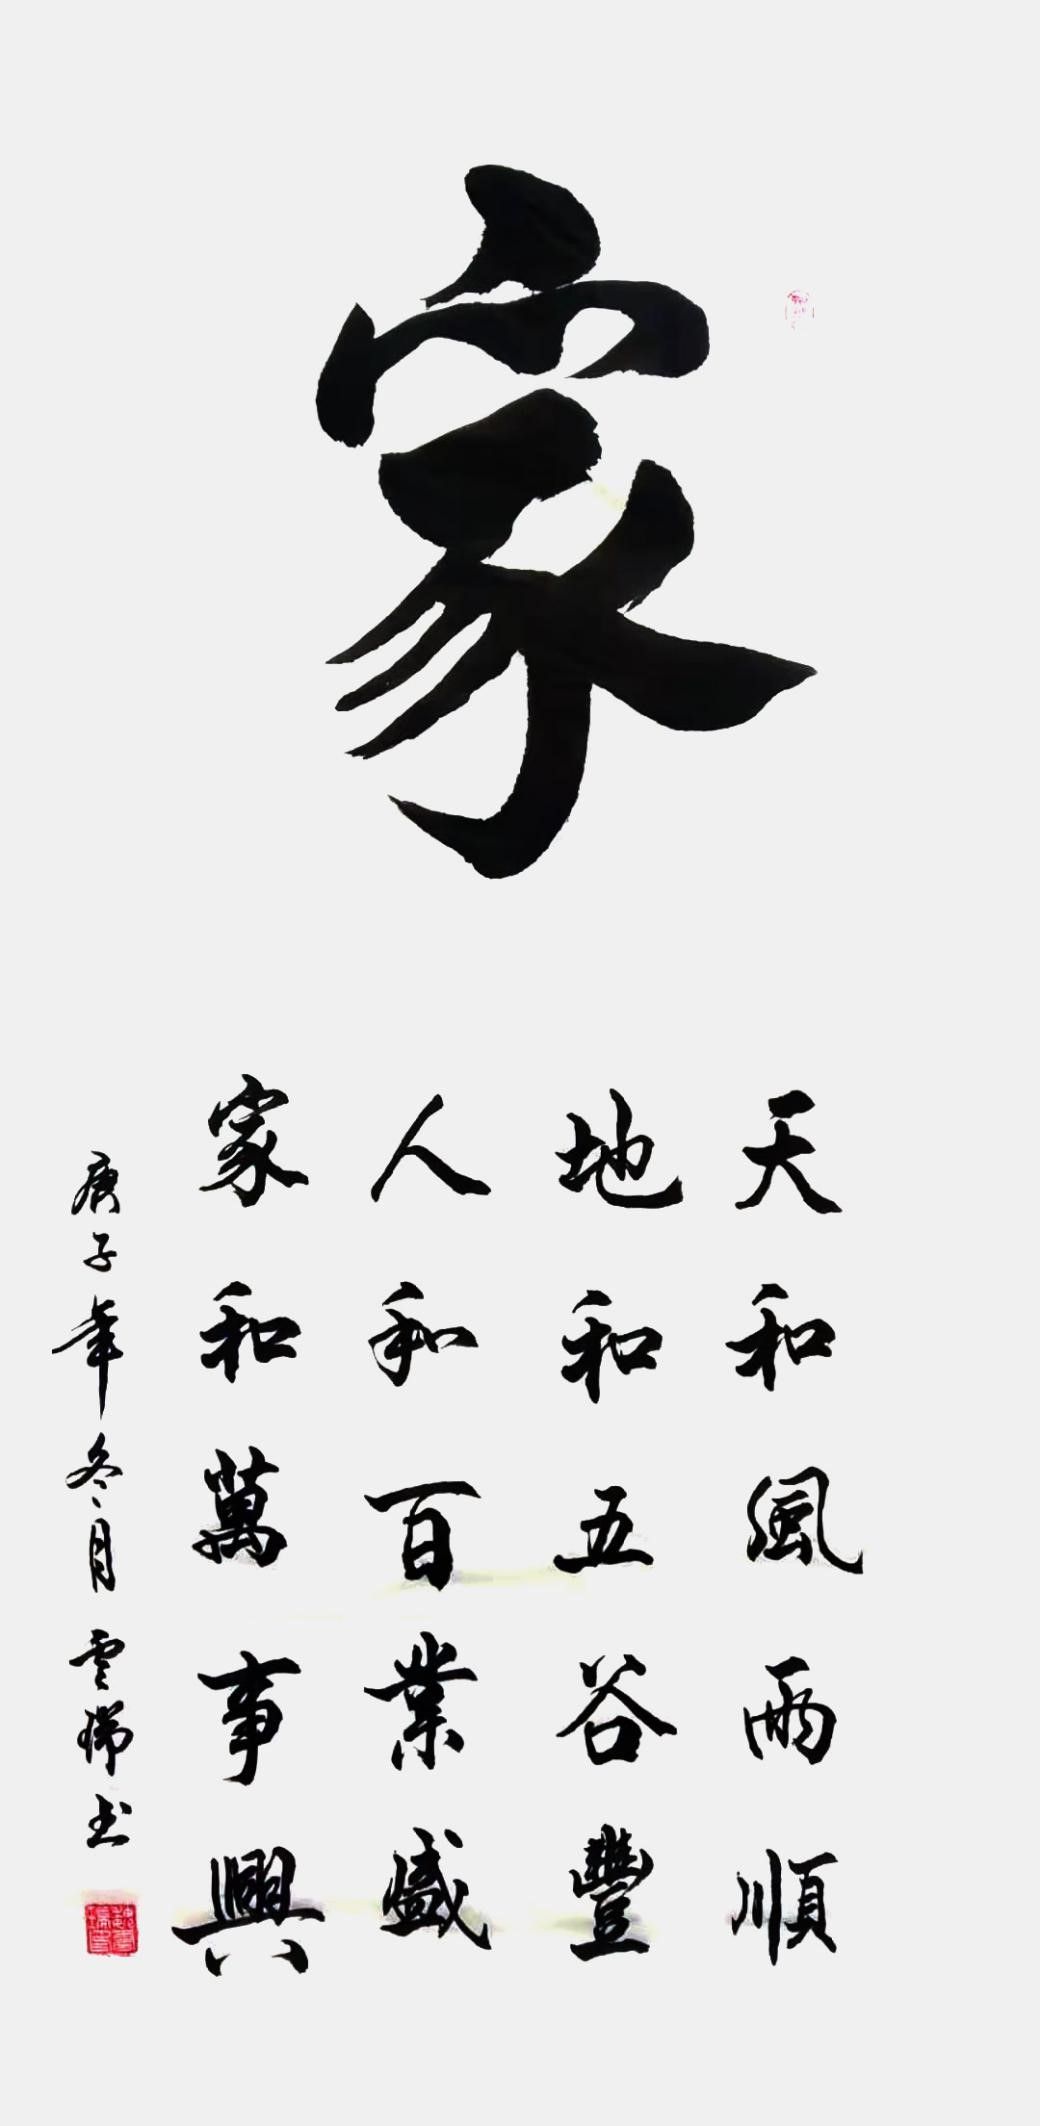 家
天和風雨順
地和五谷豐
人和百業盛
家和萬事興
庚子年冬月雲瑞书